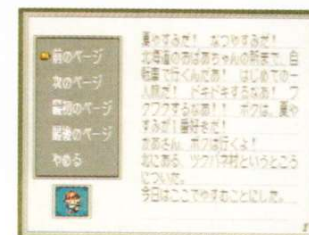 前のページ
次のページ
最初のページ
最後のページ
やめる
夏やすみだ！ なつやすみだ！
北海道のおばあちゃんの家まで、自
転車で行くんだあ！ はじめての一
人旅だ！ ドキドキするなあ！ ワ
クワクするなあ！！ ボクは、夏や
すみが1番好きだ！
かあさん、ボクは行くよ！
北にある、ツクバネ村というところ
についた。
今日はここでやすむことにした。